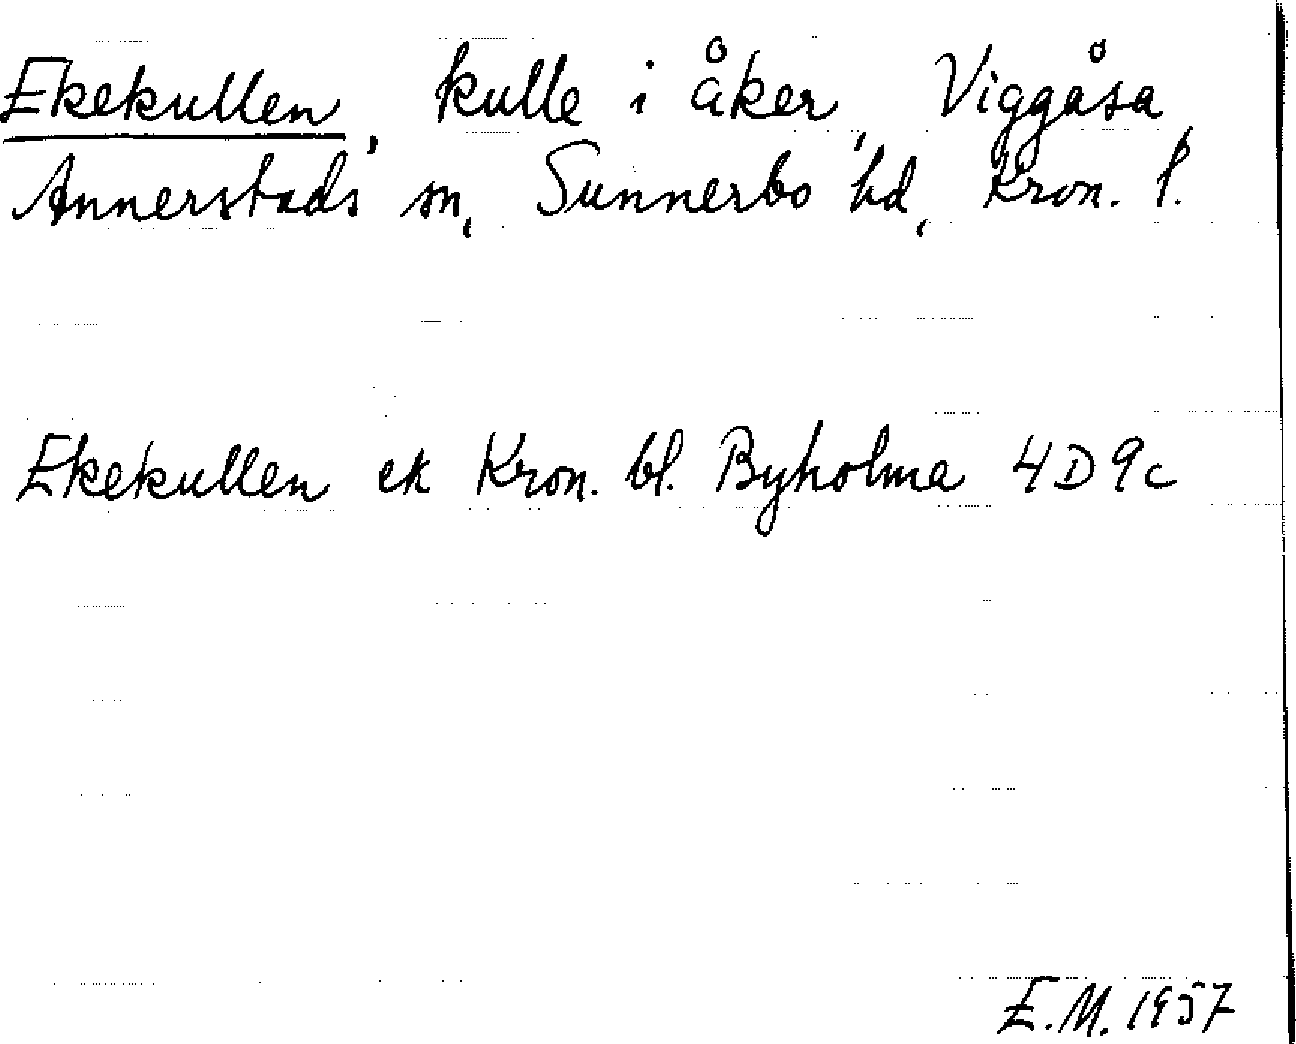 Ekekullen, kulle i åker, Viggåsa,
Annerstads sn, Sunnerbo hd, Kron. l.
Ekekullen ek Kron. bl. Byholma 4D9c
E.M. 1957